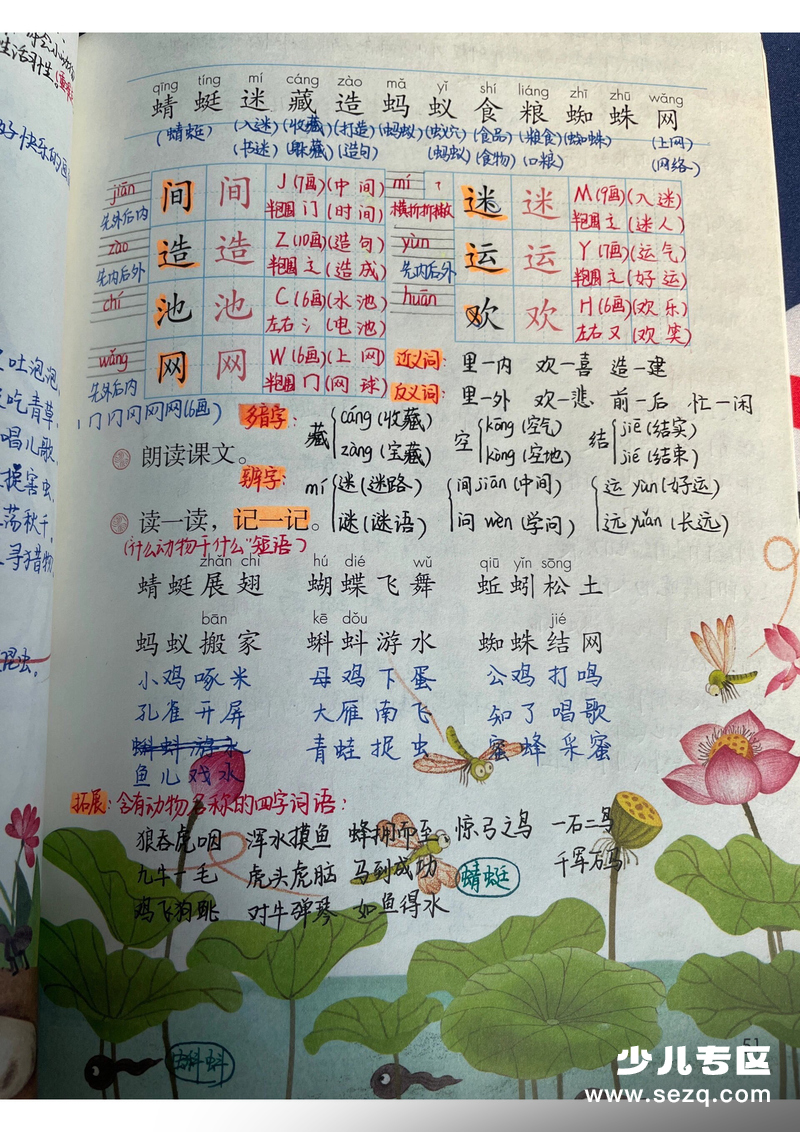 生活习性。
好快乐的画
吐泡泡,
吃青草,
唱儿歌,
捉害虫,
荡秋千,
寻猎物,
昆虫。
qīng tíng mí cáng zào mǎ yǐ shí liáng zhī zhū wǎng
蜻 蜓 迷 藏 造 蚂 蚁 食 粮 蜘 蛛 网
(蜻蜓) (入迷) (收藏) (打造) (蚂蚁) (蚁穴) (食品) (粮食) (蜘蛛) (上网)
(书迷) (躲藏) (造句) (蚂蚁) (食物) (口粮) (网络)
jiān 先外后内 间 间 J (7画) (中间) 半包围 门 (时间)
mí 横折折撇 迷 迷 M (9画) (入迷) 半包围 辶 (迷人)
zào 先内后外 造 造 Z (10画) (造句) 半包围 辶 (造成)
yùn 先内后外 运 运 Y (7画) (运气) 半包围 辶 (好运)
chí 池 池 C (6画) (水池) 左右 氵 (电池)
huān 欢 欢 H (6画) (欢乐) 左右 又 (欢笑)
wǎng 先外后内 网 网 W (6画) (上网) 半包围 冂 (网球)
近义词: 里一内 欢一喜 造一建
反义词: 里一外 欢一悲 前一后 忙一闲
丨 冂 冂 网 网 网 (6画)
多音字: 藏 cáng (收藏) zàng (宝藏) 空 kōng (空气) kòng (空地) 结 jiē (结实) jié (结束)
朗读课文。
辨字: mí 迷 (迷路) 谜 (谜语) 间 jiān (中间) 问 wèn (学问) 运 yùn (好运) 远 yuǎn (长远)
读一读,记一记。
(“什么动物干什么”短语)
zhǎn chì hú dié wǔ qiū yǐn sōng
蜻 蜓 展 翅 蝴 蝶 飞 舞 蚯 蚓 松 土
bān kē dǒu jié
蚂 蚁 搬 家 蝌 蚪 游 水 蜘 蛛 结 网
小鸡啄米 母鸡下蛋 公鸡打鸣
孔雀开屏 大雁南飞 知了唱歌
蝌蚪游水 青蛙捉虫 蜜蜂采蜜
鱼儿戏水
拓展:含有动物名称的四字词语:
狼吞虎咽 浑水摸鱼 蜂拥而至 惊弓之鸟 一石二鸟
九牛一毛 虎头虎脑 马到成功 蜻蜓 千军万马
鸡飞狗跳 对牛弹琴 如鱼得水
蝌蚪
51
少儿专区
www.sezq.com